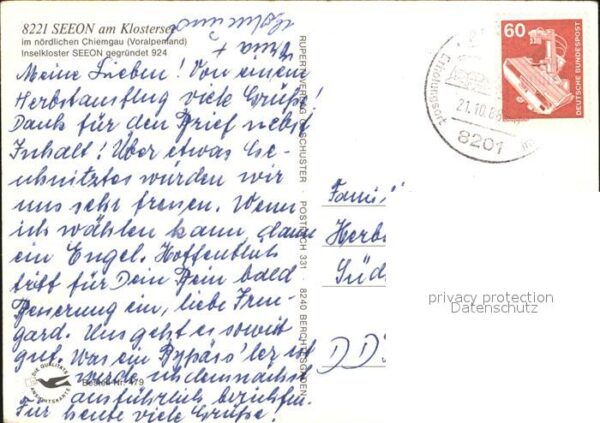 8221 SEEON am Klostersee
im nördlichen Chiemgau (Voralpenland)
Inselkloster SEEON gegründet 924
Meine Lieben! Von einem
Herbstausflug viele Grüße!
Dank für den Brief nebst
Inhalt! Über etwas Ge-
schnitztes würden wir
uns sehr freuen. Wenn
ich wählen kann, dann
ein Engel. Hoffentlich
tritt für Dein Bein bald
Besserung ein, liebe Irm-
gard. Uns geht es soweit
gut. Was ein Bypass'ler ist
werde ich demnächst
ausführlich berichten.
Für heute viele Grüße!
DIE QUALITÄTS
ANSICHTSKARTE
Bestell-Nr. 479
RUPERTIVERLAG G. SCHUSTER · POSTFACH 331 · 8240 BERCHTESGADEN
60
DEUTSCHE BUNDESPOST
21.10.86
8201
Erholungsort
Famil
Herb
Süd
DD
privacy protection
Datenschutz